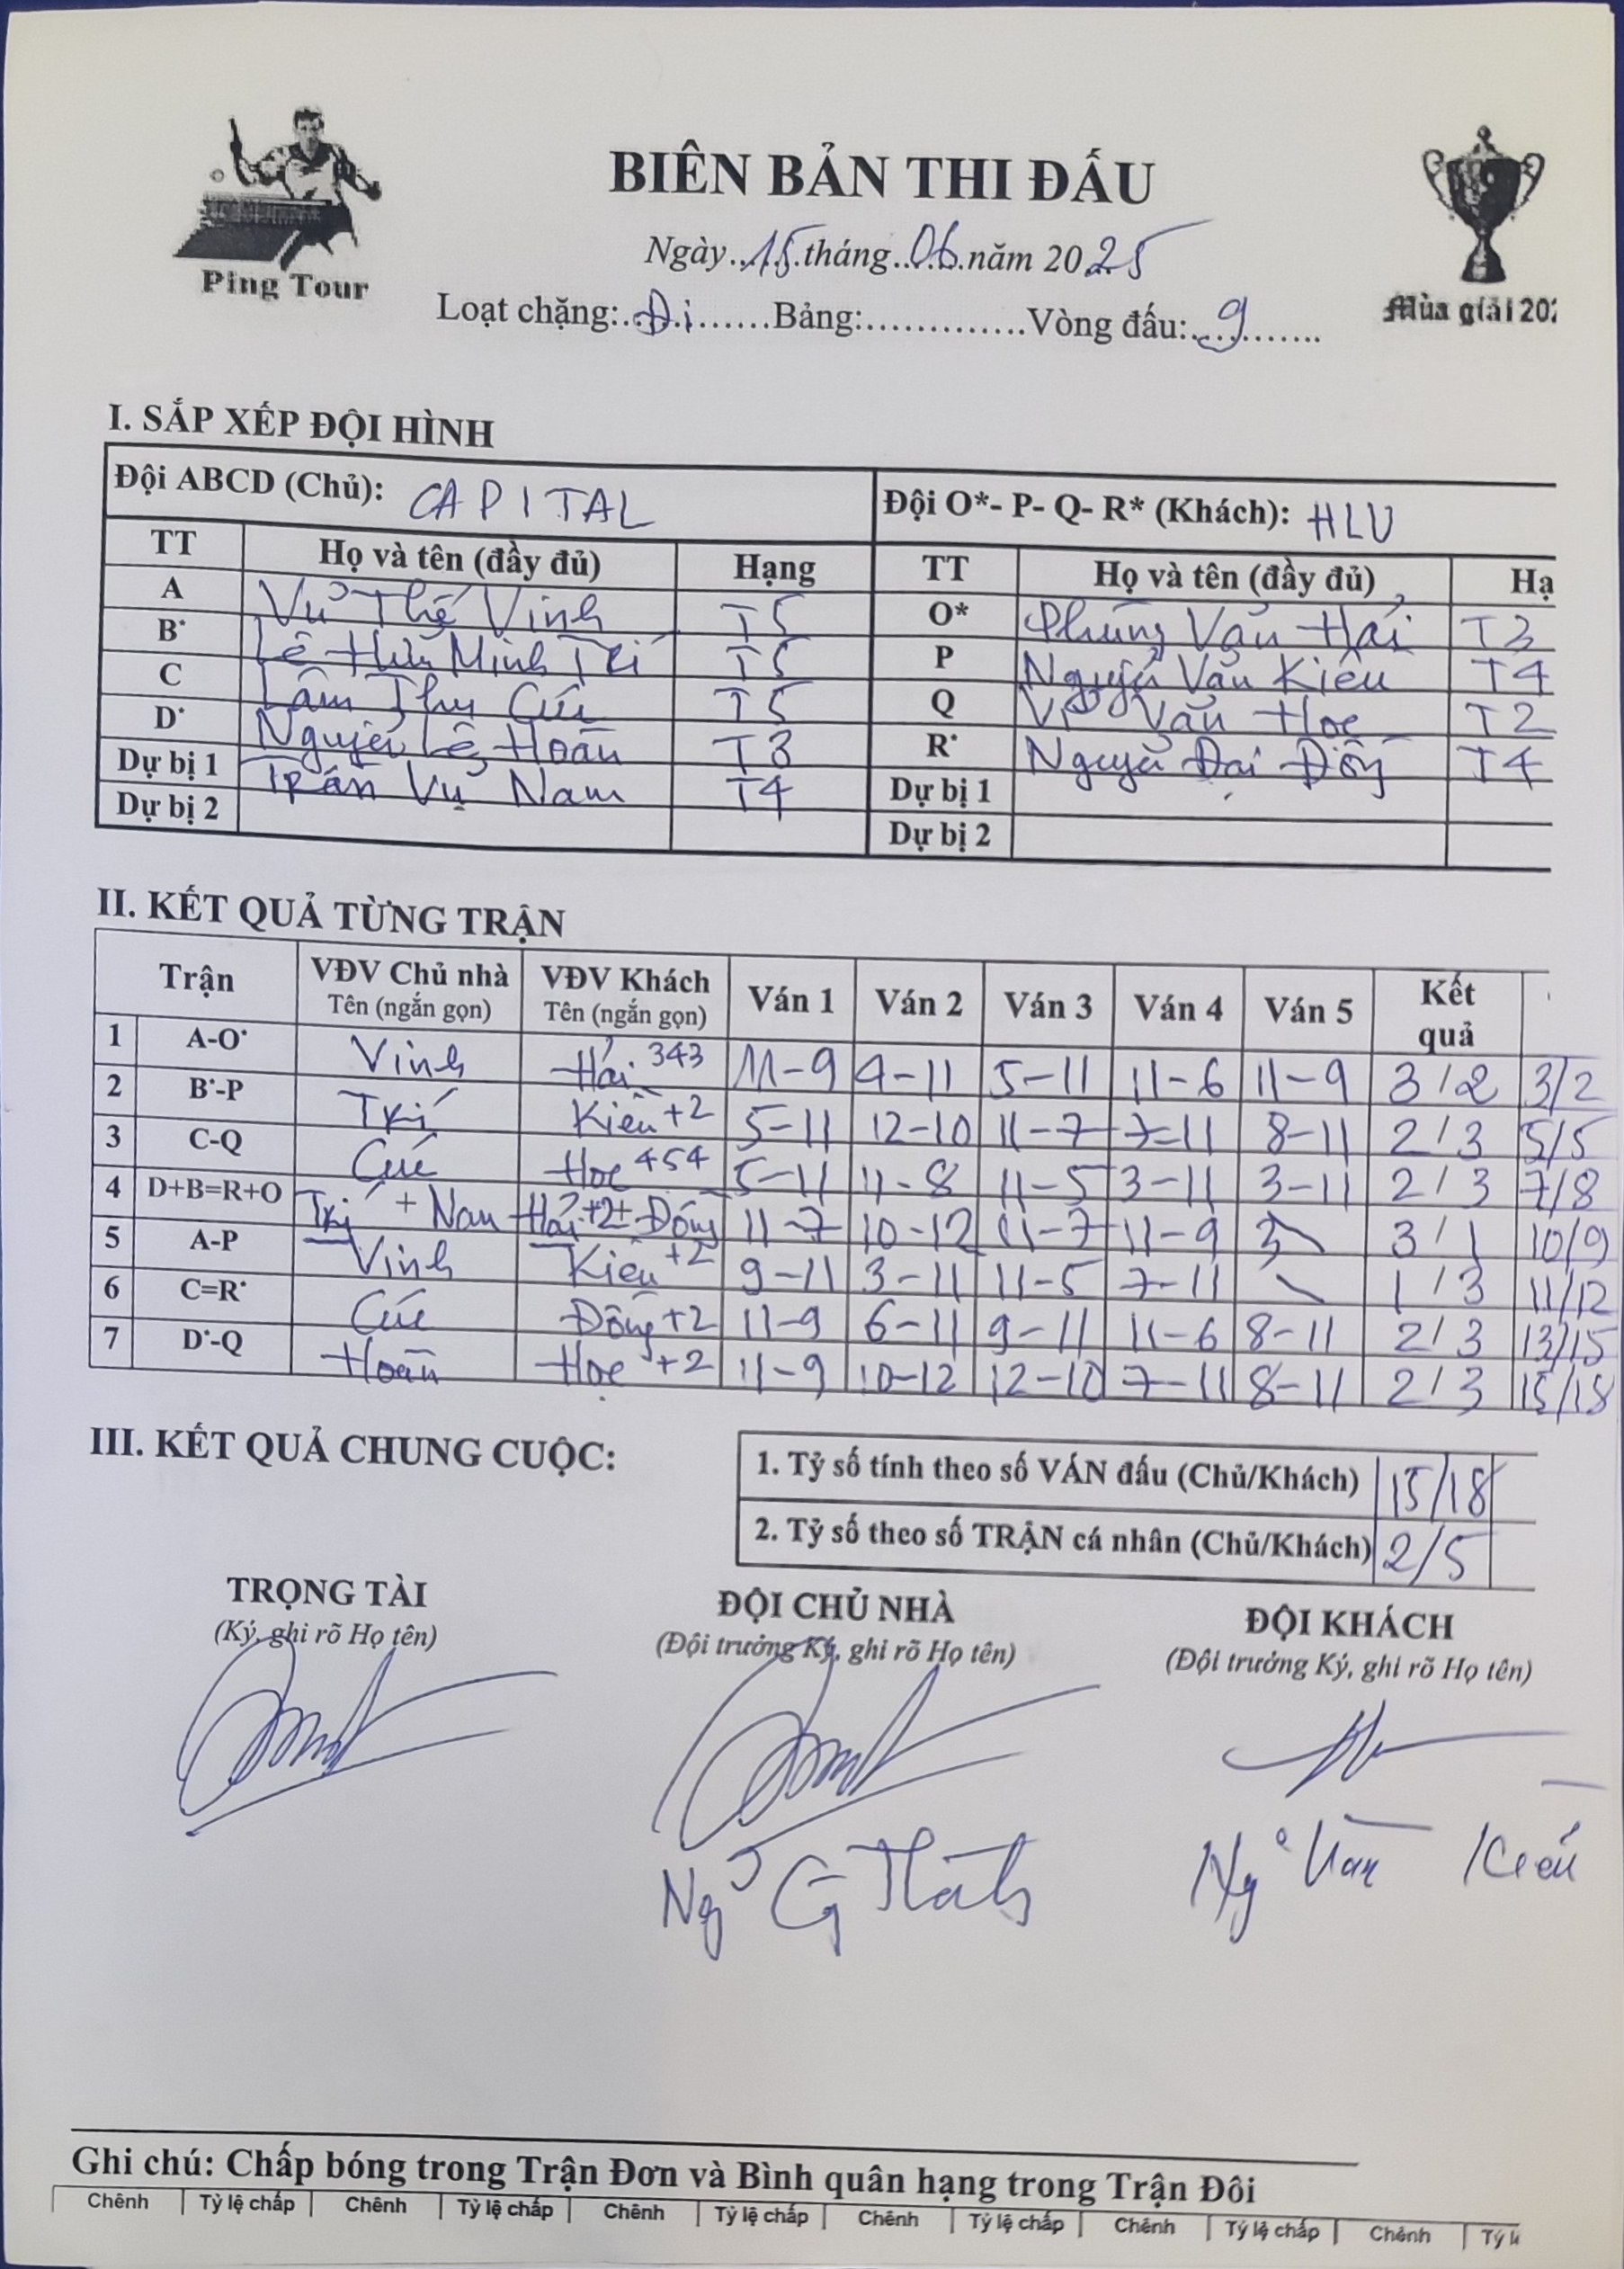 BIÊN BẢN THI ĐẤU
Ping Tour
Mùa giải 202
Ngày 15 tháng 06 năm 2025
Loạt chặng: Đi Bảng: Vòng đấu: 9
I. SẮP XẾP ĐỘI HÌNH
Đội ABCD (Chủ): CAPITAL Đội O*- P- Q- R* (Khách): HLU
TT Họ và tên (đầy đủ) Hạng TT Họ và tên (đầy đủ) Hạ
A Vũ Thế Vinh T5 O* Phùng Văn Hải T3
B* Lê Hữu Minh Trí T5 P Nguyễn Văn Kiên T4
C Lâm Thu Cúc T5 Q Vi Văn Học T2
D* Nguyễn Lê Hoàn T3 R* Nguyễn Đại Đồng T4
Dự bị 1 Trần Vũ Nam T4 Dự bị 1
Dự bị 2 Dự bị 2
II. KẾT QUẢ TỪNG TRẬN
Trận VĐV Chủ nhà Tên (ngắn gọn) VĐV Khách Tên (ngắn gọn) Ván 1 Ván 2 Ván 3 Ván 4 Ván 5 Kết quả
1 A-O* Vinh Hải 343 11-9 4-11 5-11 11-6 11-9 3/2 3/2
2 B*-P Trí Kiên +2 5-11 12-10 11-7 7-11 8-11 2/3 5/5
3 C-Q Cúc Học 454 5-11 11-8 11-5 3-11 3-11 2/3 7/8
4 D+B=R+O Trí + Nam Hải +2+ Đồng 11-7 10-12 11-7 11-9 3/1 10/9
5 A-P Vinh Kiên +2 9-11 3-11 11-5 7-11 1/3 11/12
6 C=R* Cúc Đồng +2 11-9 6-11 9-11 11-6 8-11 2/3 13/15
7 D*-Q Hoàn Học +2 11-9 10-12 12-10 7-11 8-11 2/3 15/18
III. KẾT QUẢ CHUNG CUỘC:
1. Tỷ số tính theo số VÁN đấu (Chủ/Khách) 15/18
2. Tỷ số theo số TRẬN cá nhân (Chủ/Khách) 2/5
TRỌNG TÀI ĐỘI CHỦ NHÀ ĐỘI KHÁCH
(Ký, ghi rõ Họ tên) (Đội trưởng Ký, ghi rõ Họ tên) (Đội trưởng Ký, ghi rõ Họ tên)
Ghi chú: Chấp bóng trong Trận Đơn và Bình quân hạng trong Trận Đôi
Chênh Tỷ lệ chấp Chênh Tỷ lệ chấp Chênh Tỷ lệ chấp Chênh Tỷ lệ chấp Chênh Tỷ lệ chấp Chênh Tỷ l